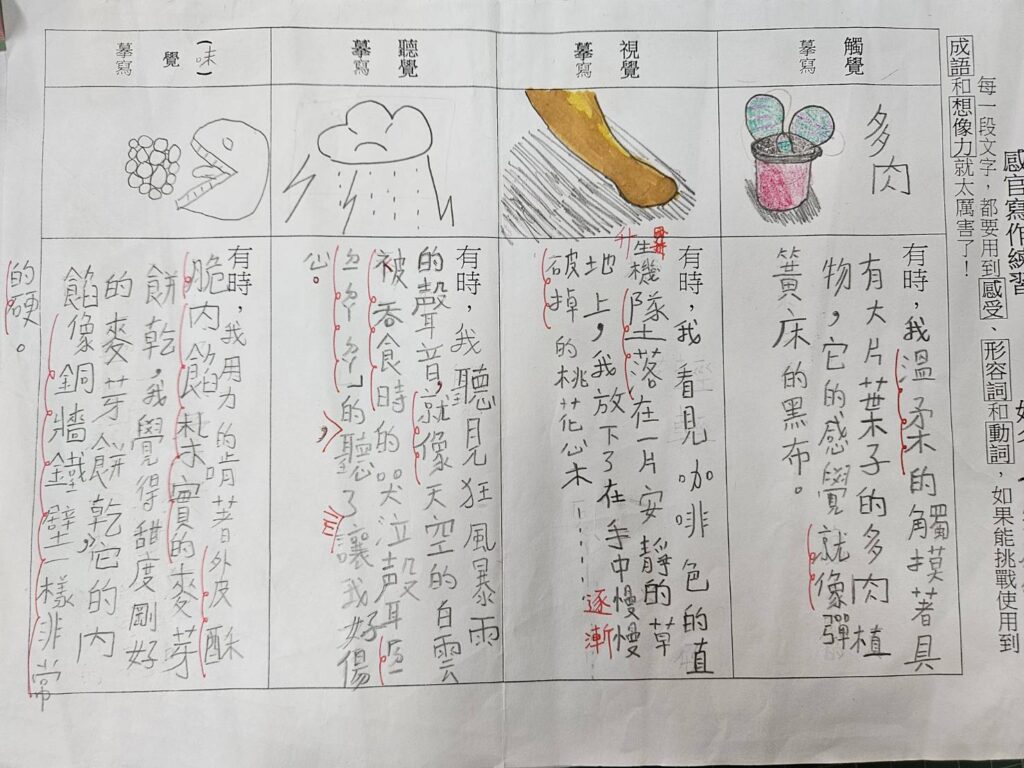 感官寫作練習
每一段文字，都要用到感受、形容詞和動詞，如果能挑戰使用到
成語和想像力就太厲害了！
觸覺
摹寫
多肉
有時，我溫柔的觸摸著具
有大片葉子的多肉植
物，它的感覺就像彈
簧床的黑布。
視覺
摹寫
有時，我看見咖啡色的植
生機墜落在一片安靜的草
地上，我放下了在手中慢慢
逐漸
破掉的桃花心木
聽覺
摹寫
有時，我聽見狂風暴雨
的聲音，就像天空的白雲
被吞食時的哭泣聲
的聽了讓我好傷
心。
(味)
覺
摹寫
有時，我用力的啃著外皮酥
脆內餡紮實的麥芽
餅乾，我覺得甜度剛好
的麥芽餅乾，它的內
餡像銅牆鐵壁一樣非常
的硬。